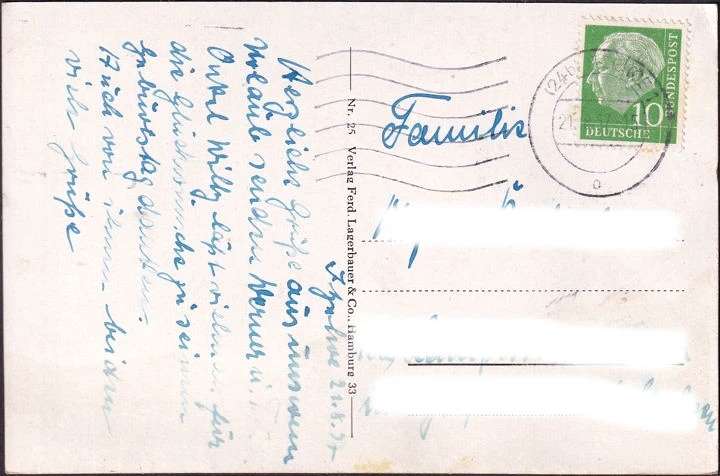 Itzehoe 21.8.57
Herzliche Grüße aus unserem
Urlaub senden Werner u.
Onkel Willy läßt vielmals für
die Glückwünsche zu seinem
Geburtstag danken.
Auch von ihnen beiden
viele Grüße
Nr. 25 Verlag Ferd. Lagerbauer & Co., Hamburg 33
Familie
(24b)
21.
10
DEUTSCHE
BUNDESPOST